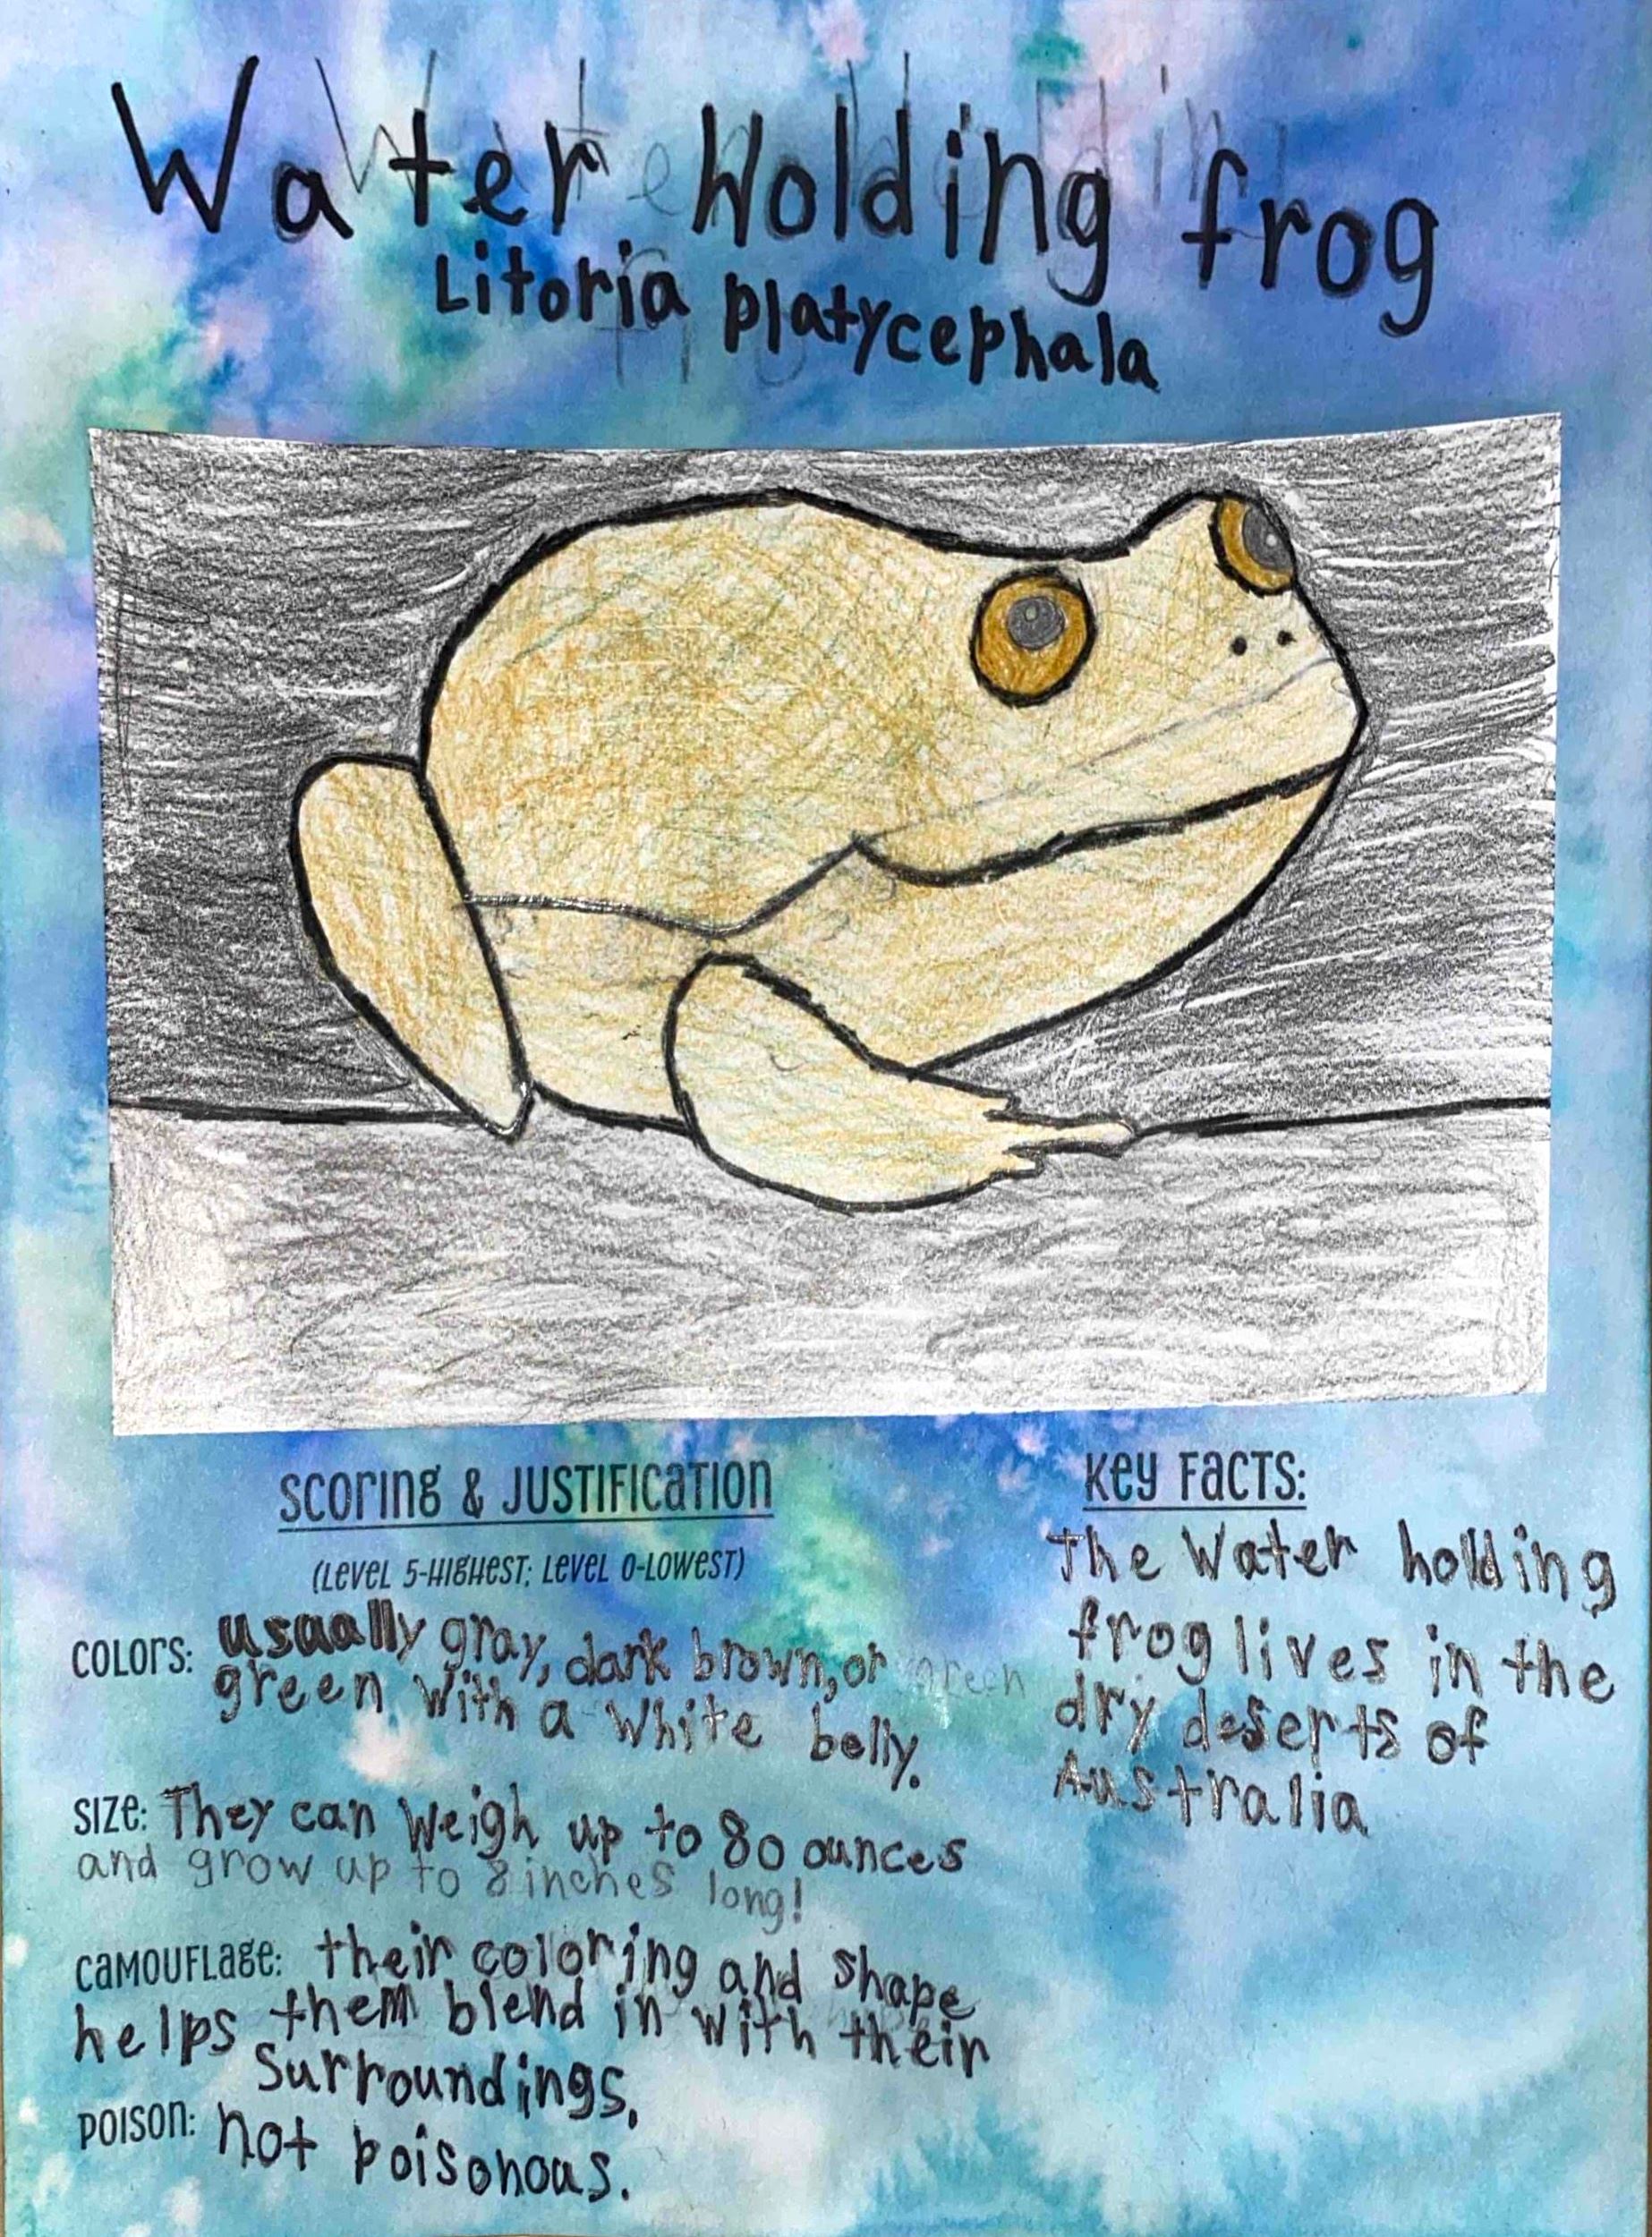 Water Holding frog
Litoria platycephala
Scoring & Justification
(Level 5-Highest; Level 0-Lowest)
Colors: usually gray, dark brown, or green
green with a white belly.
Size: They can weigh up to 80 ounces
and grow up to 8 inches long!
Camouflage: their coloring and shape
helps them blend in with their
surroundings.
Poison: not poisonous.
Key Facts:
The Water holding
frog lives in the
dry deserts of
Australia